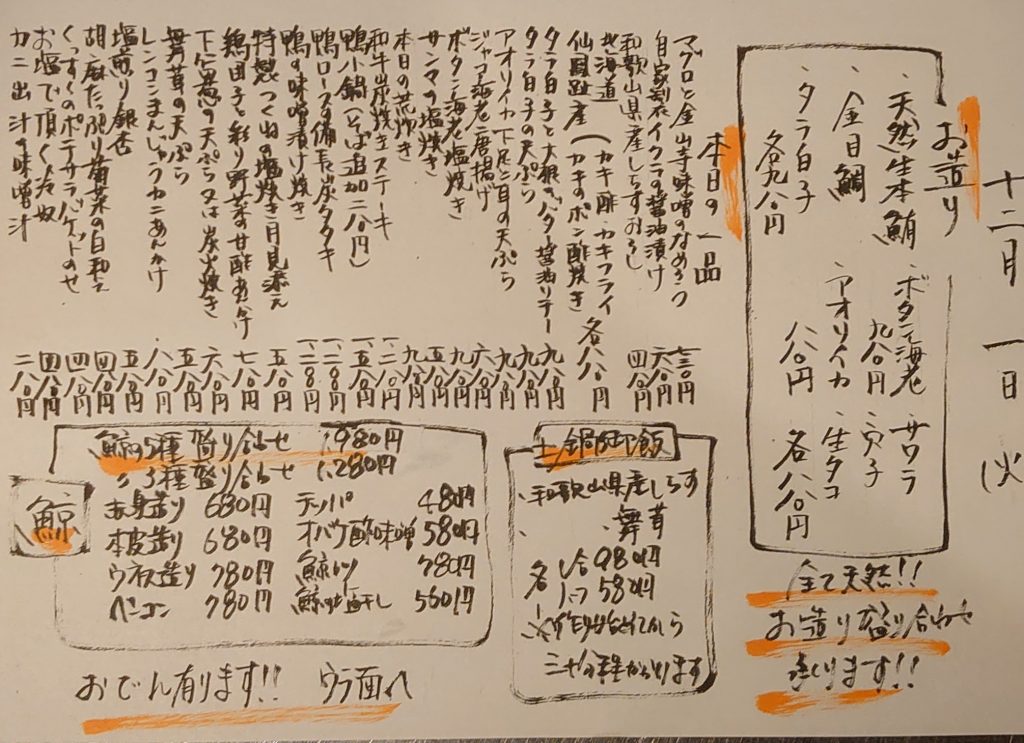 十二月一日(火)
お造り
・天然生本鮪
・ボタン海老
・サワラ
・金目鯛
九八〇円
・穴子
・タラ白子
・アオリイカ
・生タコ
各九八〇円
八八〇円
各八八〇円
全て天然!!
お造り盛り合わせ
承ります!!
本日の一品
マグロと金山寺味噌のなめろう 七三〇円
自家製イクラの醤油漬け 六八〇円
和歌山県産しらすおろし 四八〇円
北海道(カキ酢・カキフライ
仙鳳趾産(カキのポン酢焼き 各八八〇円
タラ白子と大根のバター醤油ソテー 九八〇円
タラ白子の天ぷら 九八〇円
アオリイカ下足と耳の天ぷら 九八〇円
ジャコ海老唐揚げ 六八〇円
ボタン海老塩焼き 九八〇円
サンマの塩焼き 九八〇円
本日の荒炊き 五八〇円
和牛炭焼きステーキ 九八〇円
鴨小鍋(そば追加二八〇円)
鴨ロースの備長炭タタキ
鴨の味噌漬け焼き
特製つくねの塩焼き月見添え
鶏団子と彩り野菜の甘酢あんかけ
下仁田葱の天ぷら又は炭火焼き
舞茸の天ぷら
レンコンまんじゅうカニあんかけ
塩煎り銀杏
胡麻たっぷり菊菜の白和え
くっすくのポテサラバゲットのせ
お塩で頂く冷奴 四八〇円
カニ出汁の味噌汁 二八〇円
土鍋御飯
・和歌山県産しらす
・舞茸
各 一合980円
ハーフ580円
三十分程かかります
鯨
鯨の5種盛り合せ 1,980円
〃3種盛り合せ 1,280円
赤身造り 680円
本皮造り 680円
ウネス造り 780円
ベーコン 780円
テッパ 480円
オバケ酢味噌 580円
鯨カツ 780円
おでん有ります!! ウラ面へ